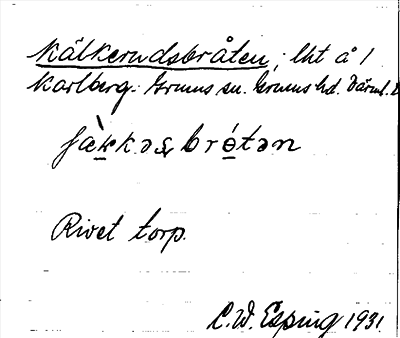 Kälkerudsbråten, lht å /
Karlberg. Grums sn. Grums hd. Värml.
brótən
Rivet torp.
C.W. Esping 1931.